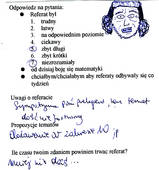 Odpowiedz na pytania:
Referat był
1. trudny
2. łatwy
3. na odpowiednim poziomie
4. ciekawy
5. zbyt długi
6. zbyt krótki
7. niezrozumiały
od dzisiaj boję się matematyki
chciałbym/chciałabym aby referaty odbywały się co
tydzień
Uwagi o referacie
Sympatyczna Pani temat
dość
Propozycje tematów
10
Ile czasu twoim zdaniem powinien trwać referat?
niż